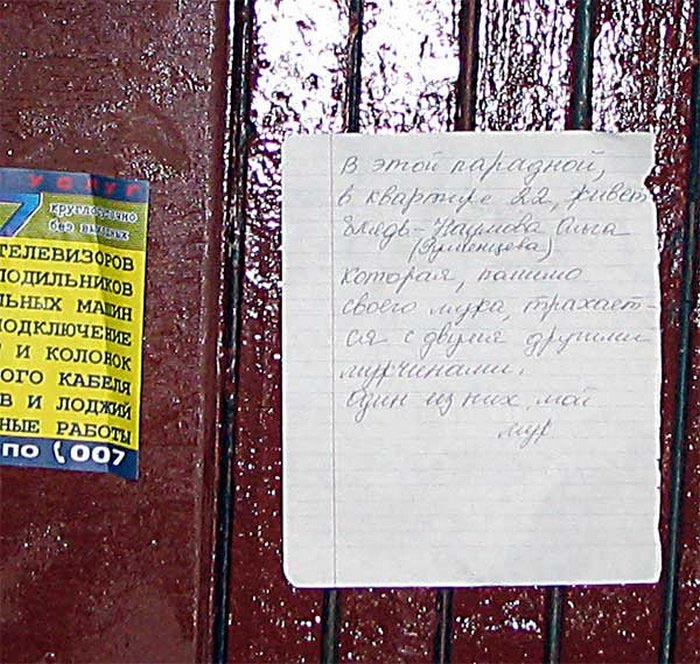 УСЛУГ
7
круглосуточно
без выходных
ТЕЛЕВИЗОРОВ
ЛОДИЛЬНИКОВ
ЛЬНЫХ МАШИН
ПОДКЛЮЧЕНИЕ
И КОЛОНОК
ОГО КАБЕЛЯ
В И ЛОДЖИЙ
НЫЕ РАБОТЫ
ПО 007
В этой парадной,
в квартире 22, живет
блядь - Наумова Ольга
(Румянцева)
которая, помимо
своего мужа, трахает-
ся с двумя другими
мужчинами.
Один из них, мой
муж